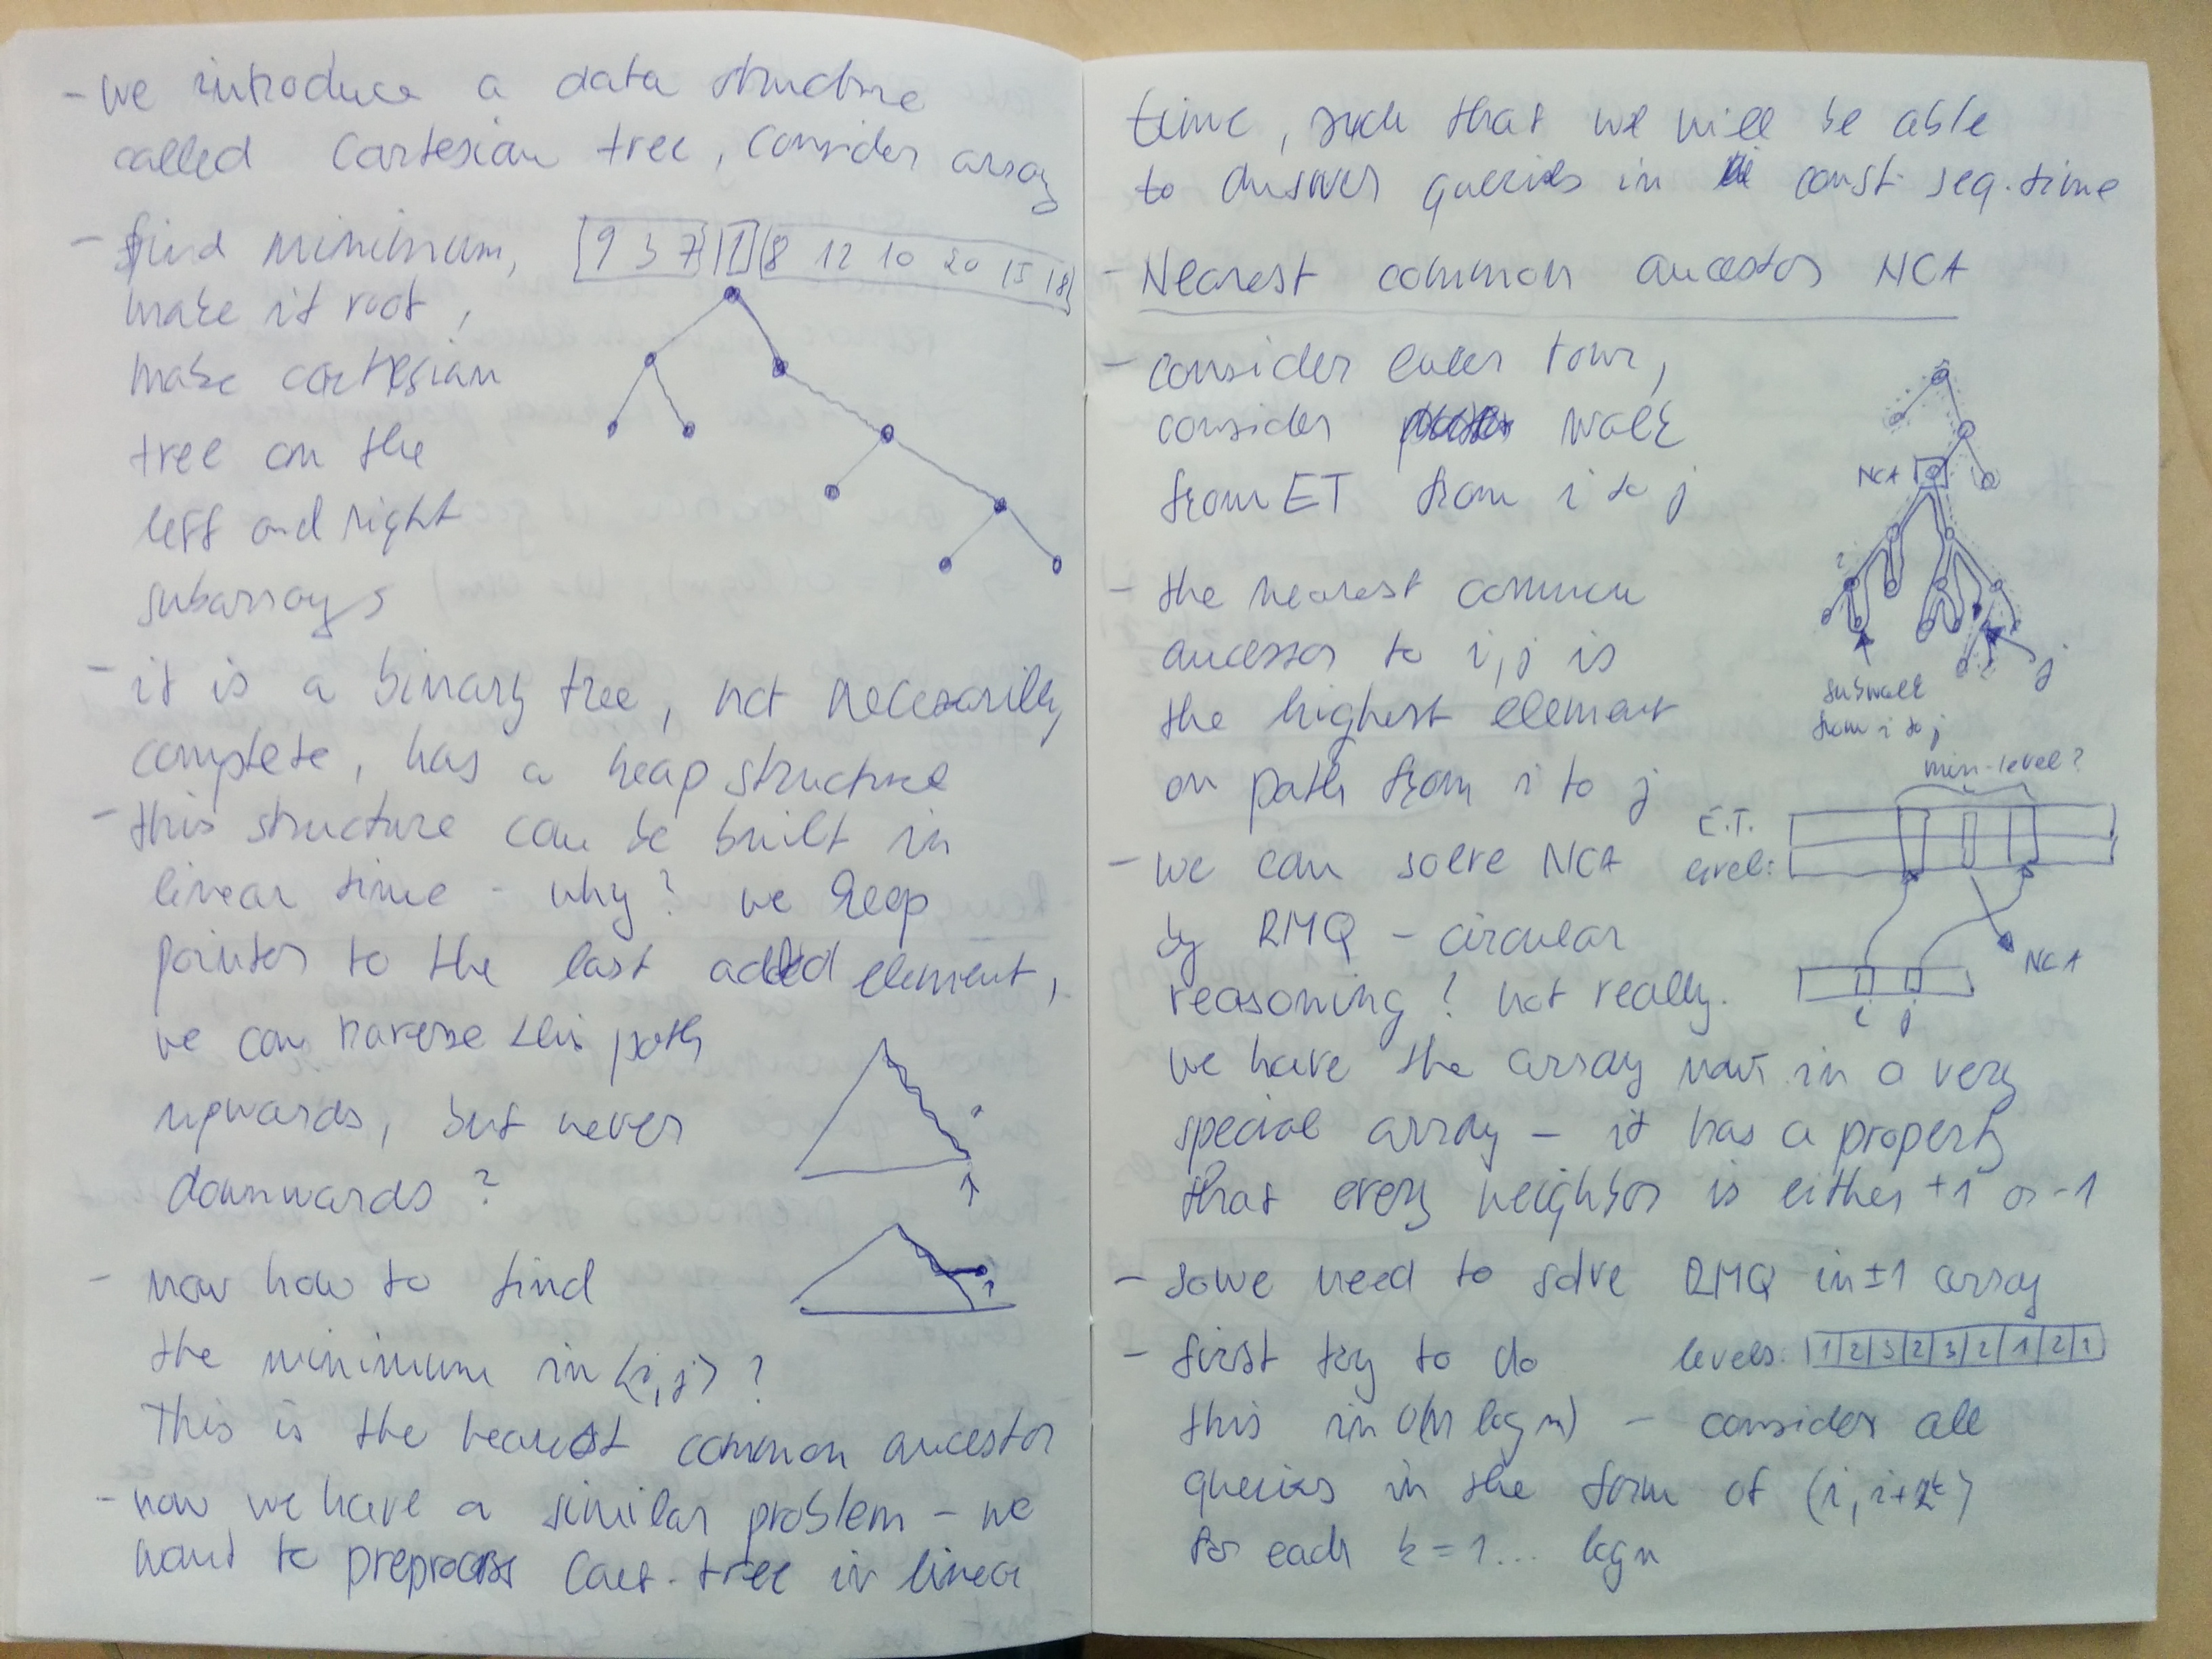 - we introduce a data structure
called Cartesian tree, consider array
- find minimum,
[9 3 7] [1] [8 12 10 20 15 18]
make it root,
make cartesian
tree on the
left and right
subarrays
- it is a binary tree, not necessarily
complete, has a heap structure
- this structure can be built in
linear time - why? we keep
pointer to the last added element,
we can traverse this path
upwards, but never
downwards?
- now how to find
the minimum in <i,j>?
This is the nearest common ancestor
- now we have a similar problem - we
want to preprocess Cart. tree in linear
time, such that we will be able
to answer queries in const. seq. time
- Nearest common ancestor NCA
- consider euler tour,
consider walk
from ET from i to j
NCA
i
j
subwalk
from i to j
- the nearest common
ancessor to i,j is
the highest element
on path from i to j
min-level?
E.T.
level:
NCA
i j
- we can solve NCA
by RMQ - circular
reasoning? not really.
we have the array now in a very
special array - it has a property
that every neighbor is either +1 or -1
- so we need to solve RMQ in ±1 array
- first try to do
levels: |1|2|3|2|3|2|1|2|1|
this in O(n log n) - consider all
queries in the form of (i, i+2^k)
for each k = 1... log n